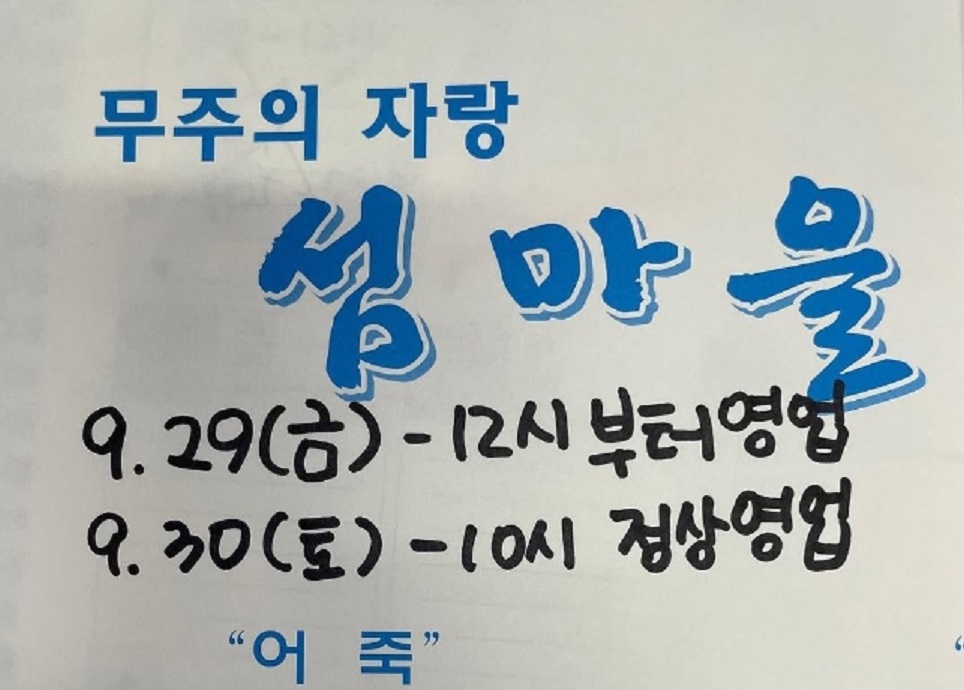 무주의 자랑
섬마을
9.29(금)-12시부터영업
9.30(토)-10시 정상영업
“어 죽”